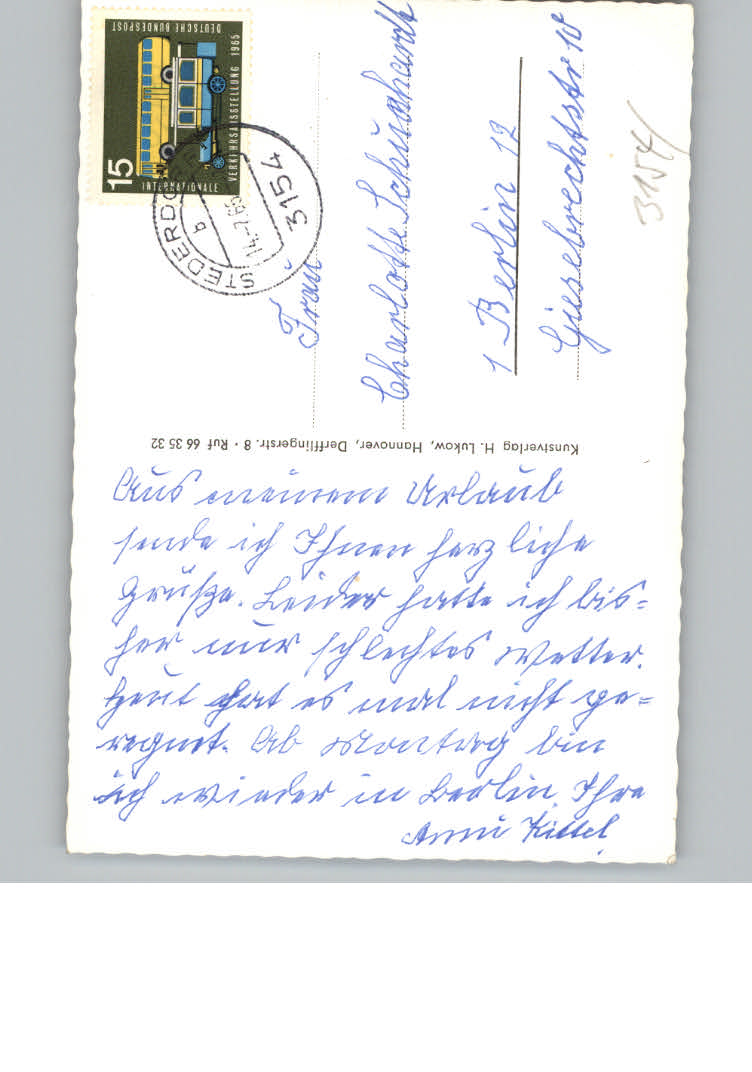 Aus meinem Urlaub
sende ich Ihnen herzliche
Grüße. Leider hatte ich bis=
her nur schlechtes Wetter.
Heut hat es mal nicht ge=
regnet. Ab Montag bin
ich wieder in Berlin. Ihre
Anni Kittel
Kunstverlag H. Lukow, Hannover, Derfflingerstr. 8 · Ruf 66 35 32
Frau
Charlotte Schuchardt
1 Berlin 12
Giesebrechtstr 10
3154
DEUTSCHE BUNDESPOST
INTERNATIONALE VERKEHRSAUSSTELLUNG 1965
15
3154 STEDERDORF
b